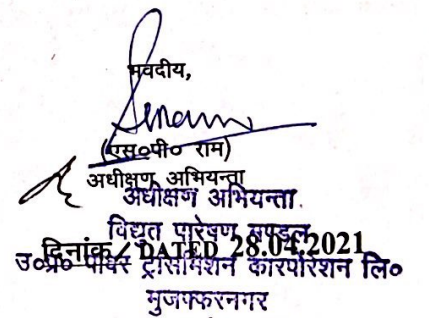 भवदीय,
(एस०पी० राम)
अधीक्षण अभियन्ता
अधीक्षण अभियन्ता
विद्युत पारेषण मण्डल
दिनांक / DATED 28.04.2021
उ०प्र० पावर ट्रांसमिशन कारपोरेशन लि०
मुजफ्फरनगर